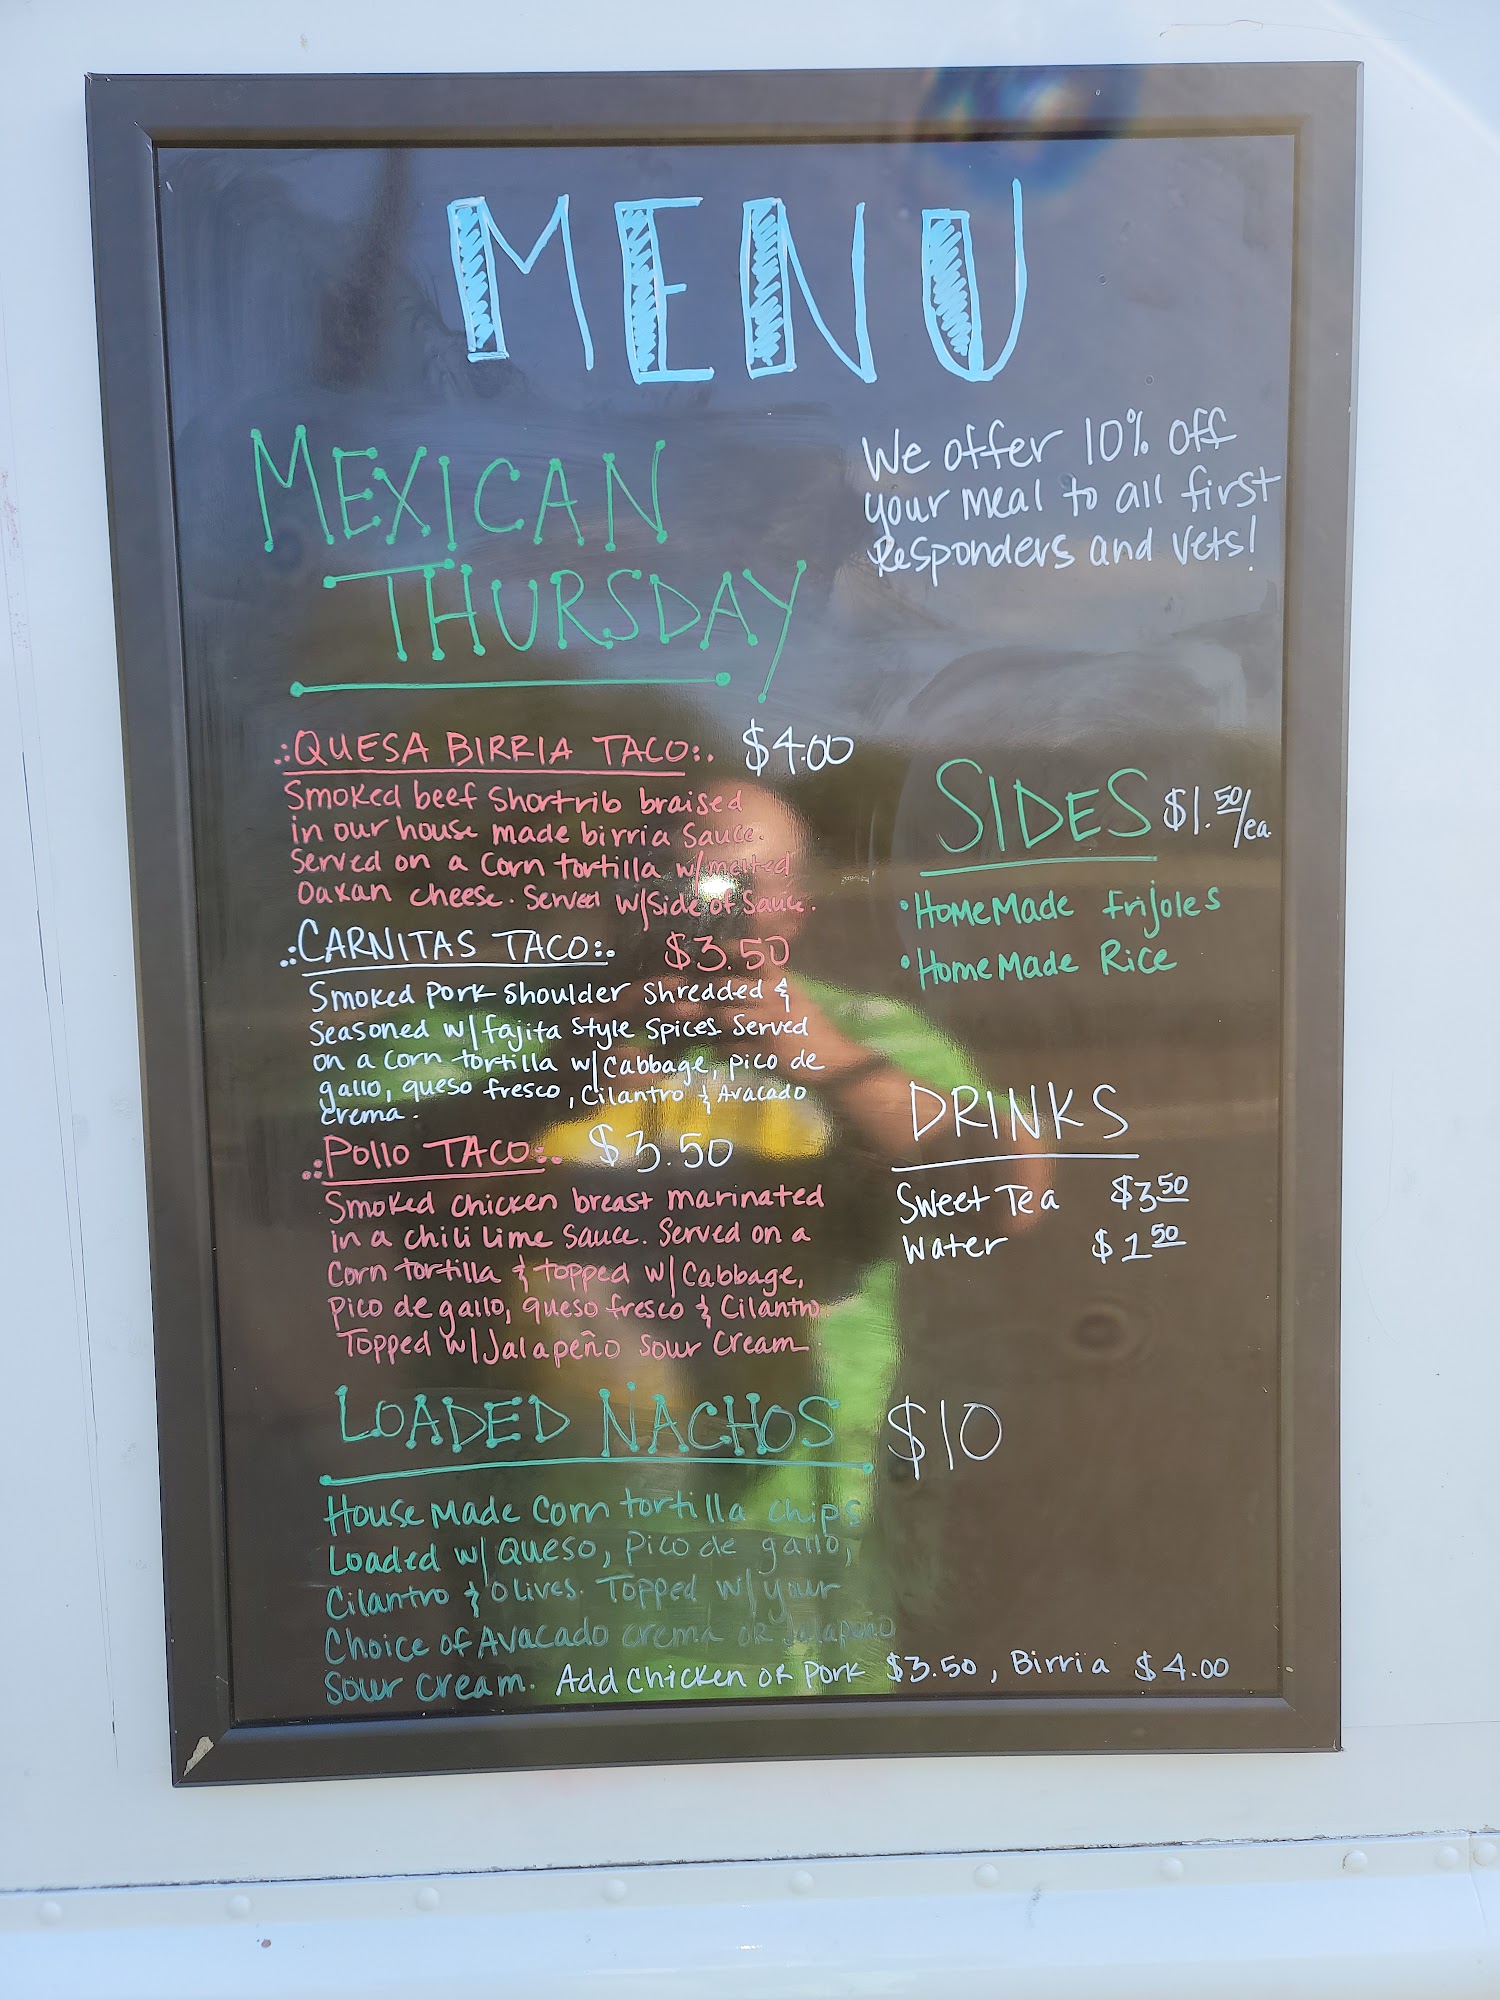 MENU
MEXICAN
THURSDAY
We offer 10% off
your meal to all first
Responders and Vets!
.:QUESA BIRRIA TACO:. $4.00
Smoked beef Shortrib braised
in our house made birria Sauce.
Served on a Corn tortilla w/melted
Oaxan cheese. Served w/Side of Sauce.
.:CARNITAS TACO:. $3.50
Smoked pork shoulder Shredded &
Seasoned w/fajita Style Spices. Served
on a Corn tortilla w/Cabbage, pico de
gallo, queso fresco, Cilantro & Avacado
Crema.
.:POllO TACO:. $3.50
Smoked chicken breast marinated
in a chili lime Sauce. Served on a
Corn tortilla & topped w/Cabbage,
pico de gallo, queso fresco & Cilantro.
Topped w/Jalapeño Sour Cream
LOADED NACHOS $10
House Made Corn tortilla chips
Loaded w/Queso, Pico de gallo,
Cilantro & Olives. Topped w/your
Choice of Avacado crema or Jalapeño
Sour cream. Add Chicken or Pork $3.50, Birria $4.00
SIDES $1.50/ea.
•HomeMade frijoles
•HomeMade Rice
DRINKS
Sweet Tea $3.50
Water $1.50